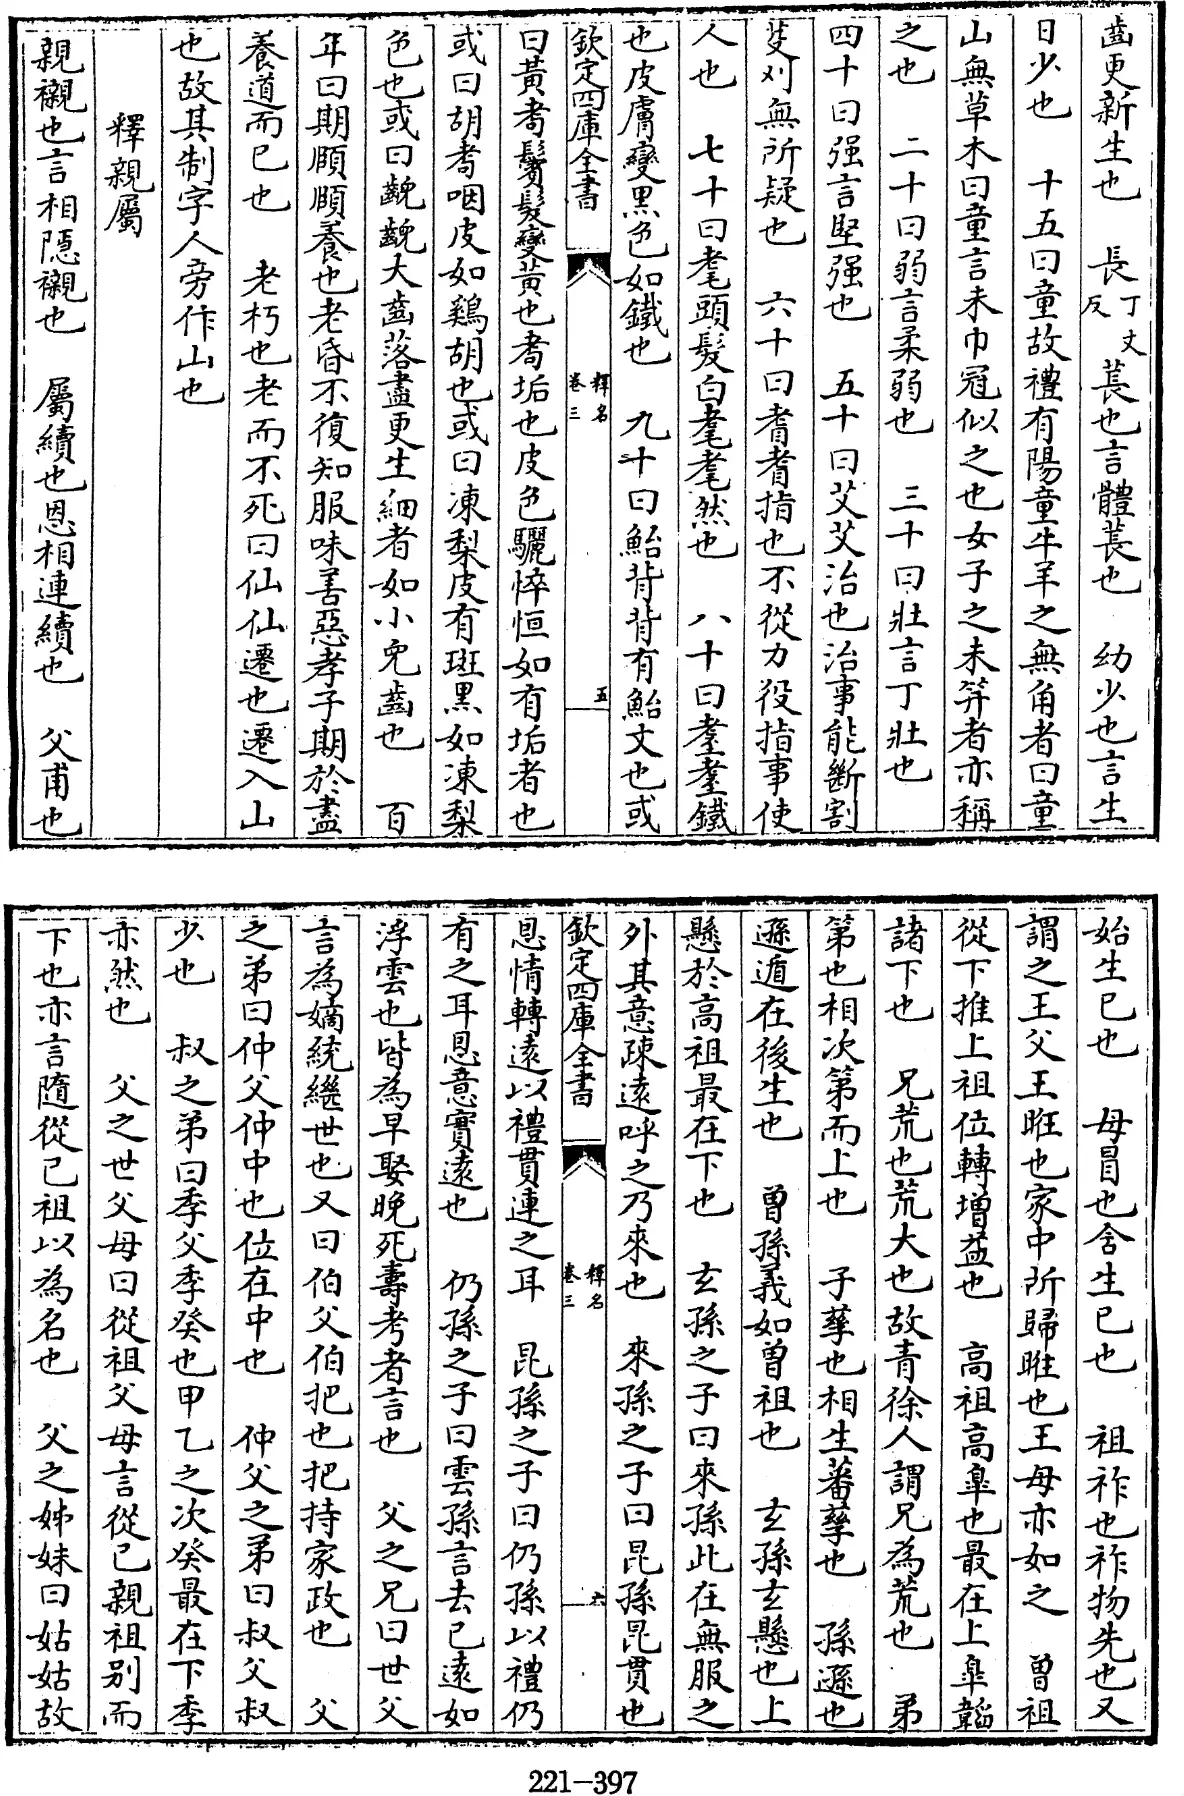 齒更新生也　長丁丈反萇也言體萇也　幼少也言生
日少也　十五曰童故禮有陽童牛羊之無角者曰童
山無草木曰童言未巾冠似之也女子之未笄者亦稱
之也　二十曰弱言柔弱也　三十曰壯言丁壯也
四十曰强言堅强也　五十曰艾艾治也治事能斷割
芟刈無所疑也　六十曰耆耆指也不從力役指事使
人也　七十曰耄頭髮白耄耄然也　八十曰耋耋鐵
也皮膚變黑色如鐵也　九十曰鮐背背有鮐文也或
欽定四庫全書　釋名卷三　五
曰黃耇鬢髮變黃也耇垢也皮色驪悴恒如有垢者也
或曰胡耇咽皮如鷄胡也或曰凍梨皮有斑黑如凍梨
色也或曰齯齯大齒落盡更生細者如小兒齒也　百
年曰期頤頤養也老昏不復知服味善惡孝子期於盡
養道而已也　老朽也老而不死曰仙仙遷也遷入山
也故其制字人旁作山也
釋親屬
親襯也言相隱襯也　屬續也恩相連續也　父甫也
始生已也　母冒也含生已也　祖祚也祚物先也又
謂之王父王暀也家中所歸暀也王母亦如之　曾祖
從下推上祖位轉增益也　高祖高臯也最在上臯韜
諸下也　兄荒也荒大也故青徐人謂兄為荒也　弟
第也相次第而上也　子孳也相生蕃孳也　孫遜也
遜遁在後生也　曾孫義如曾祖也　玄孫玄懸也上
懸於高祖最在下也　玄孫之子曰來孫此在無服之
外其意疎遠呼之乃來也　來孫之子曰昆孫昆貫也
欽定四庫全書　釋名卷三　六
恩情轉遠以禮貫連之耳　昆孫之子曰仍孫以禮仍
有之耳恩意實遠也　仍孫之子曰雲孫言去已遠如
浮雲也皆為早娶晚死壽考者言也　父之兄曰世父
言為嫡統繼世也又曰伯父伯把也把持家政也　父
之弟曰仲父仲中也位在中也　仲父之弟曰叔父叔
少也　叔之弟曰季父季癸也甲乙之次癸最在下季
亦然也　父之世父母曰從祖父母言從已親祖别而
下也亦言隨從已祖以為名也　父之姊妹曰姑姑故
221-397